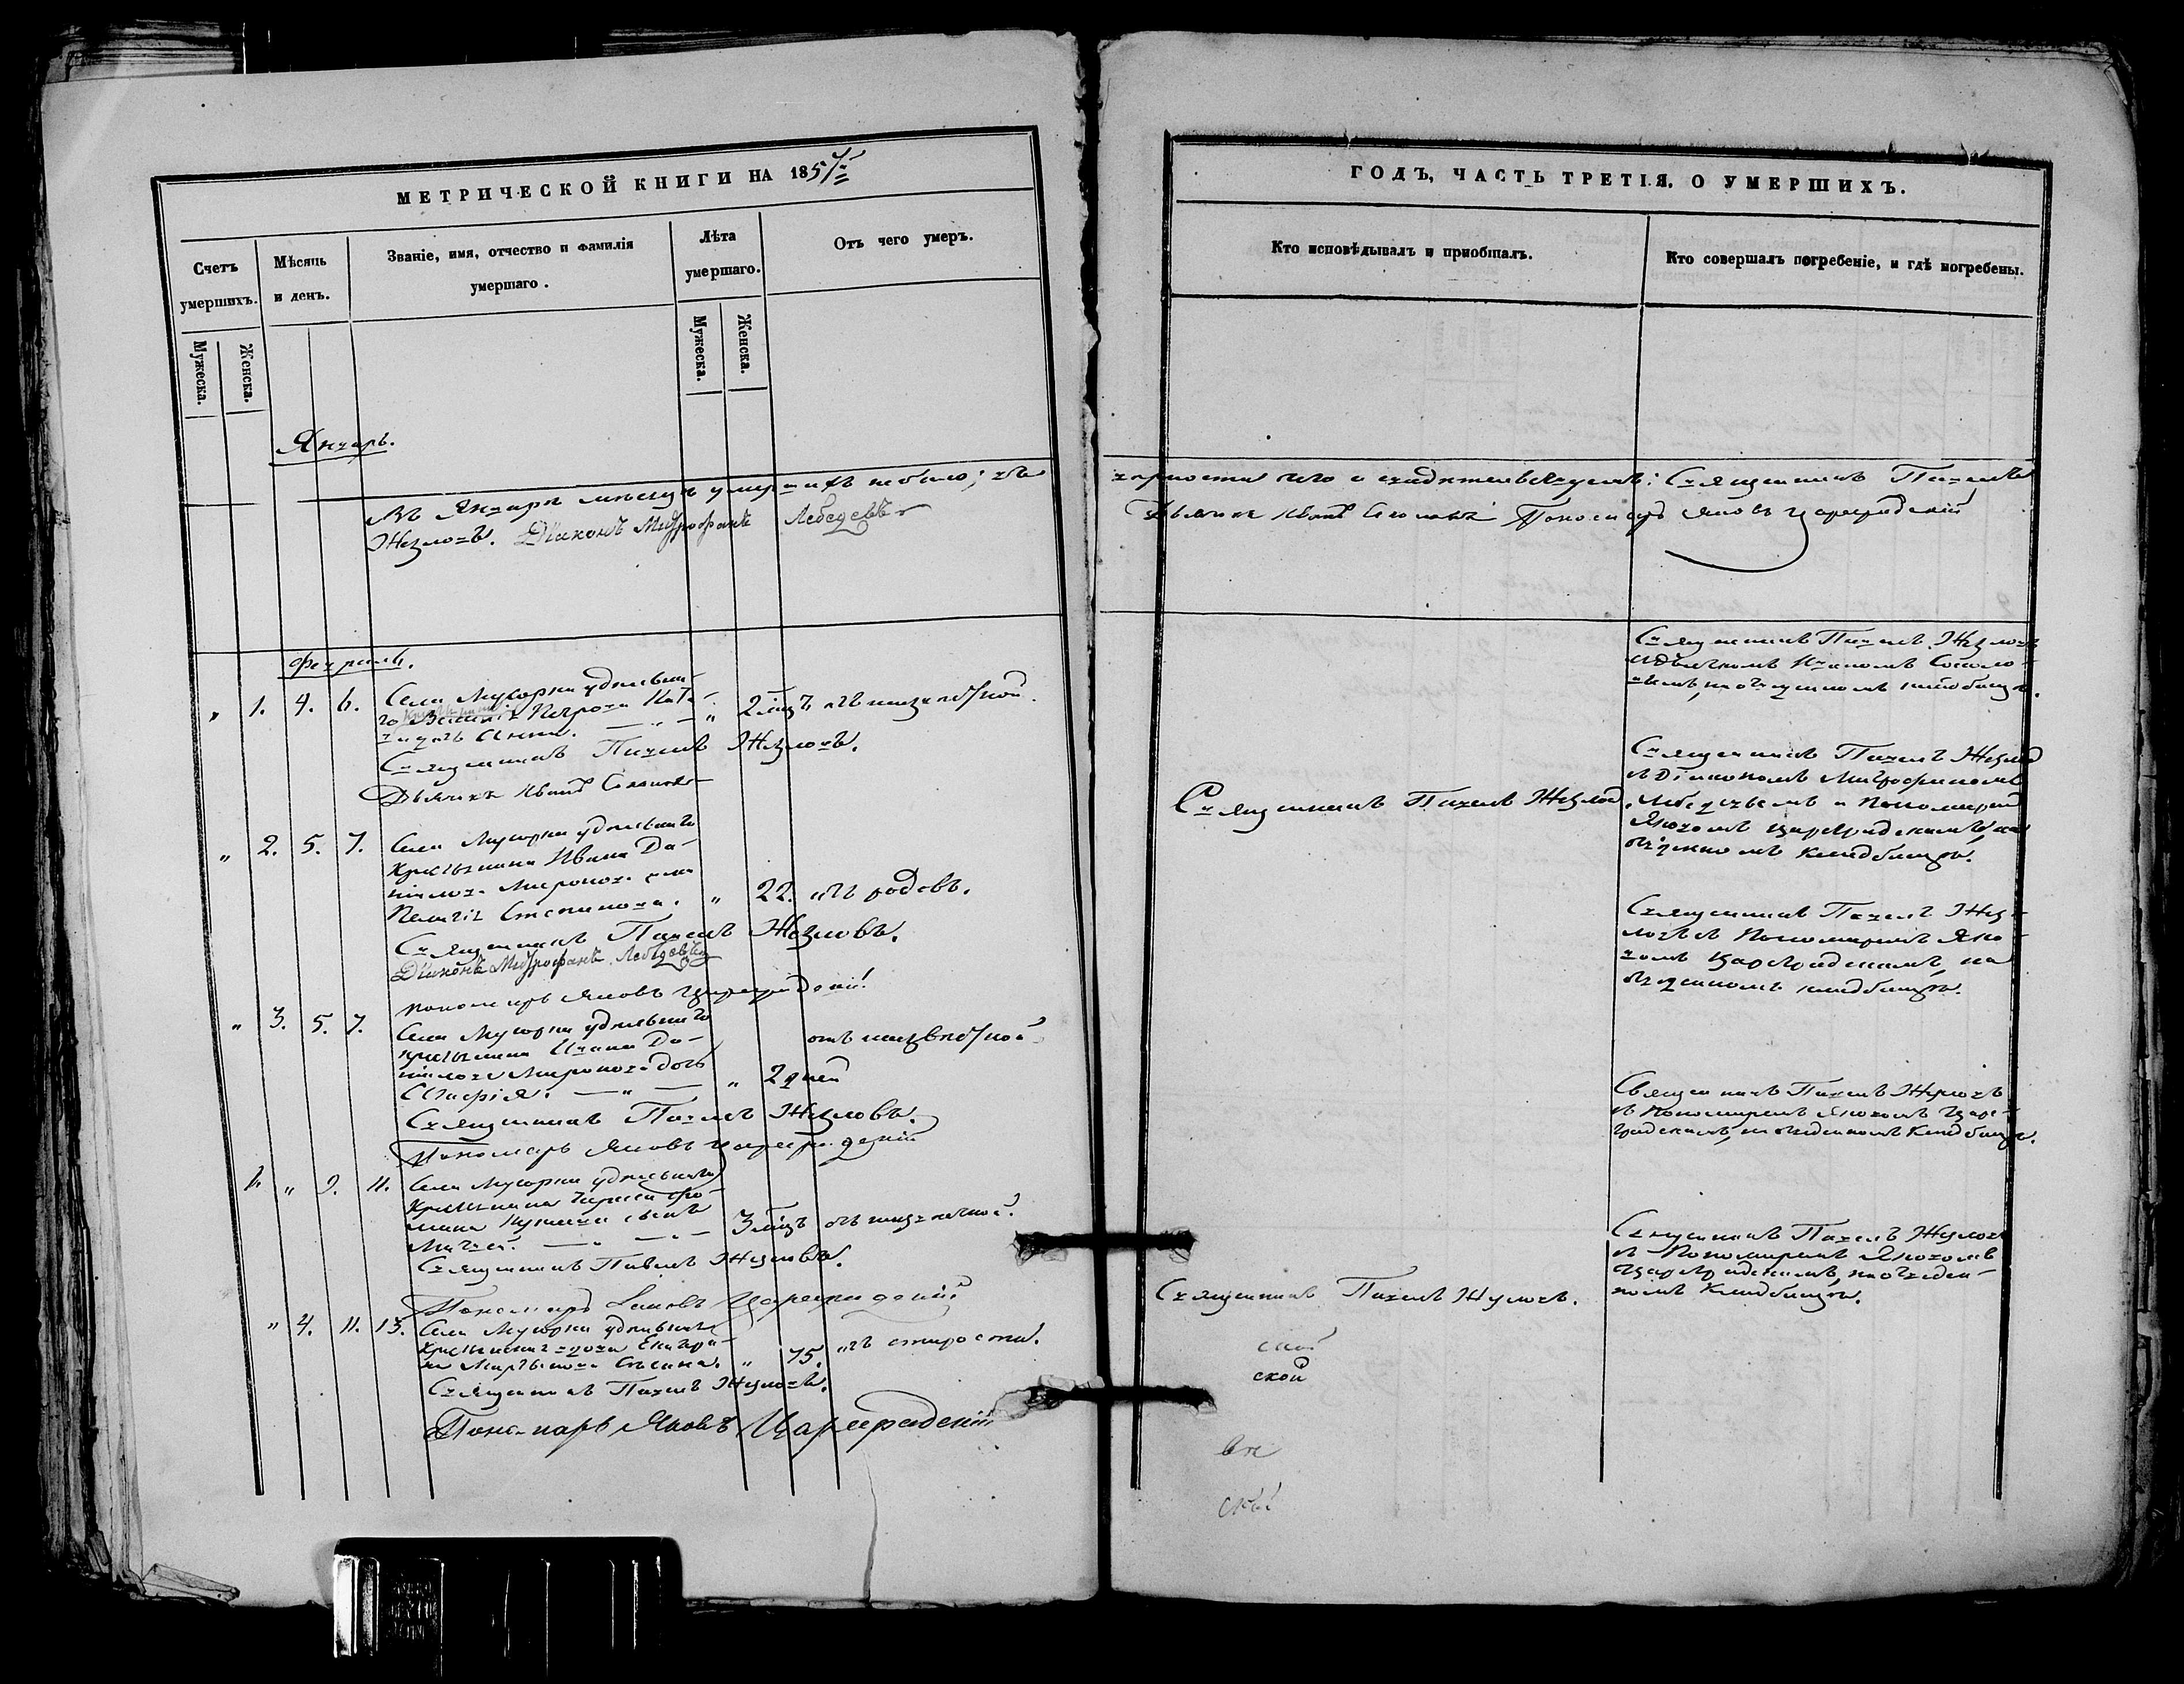 МЕТРИЧЕСКОЙ КНИГИ НА 1857
Счетъ умершихъ.
Мужеска.
Женска.
Мѣсяцъ и день.
Званіе, имя, отчество и фамилія умершаго.
Лѣта умершаго.
Мужеска.
Женска.
Отъ чего умеръ.
Январь.
Въ Январѣ мѣсяцѣ умершихъ не было; въ
Жезловъ. Діаконъ Митрофанъ Лебедевъ
Февраль.
" 1. 4. 6. Села Мусорки удѣльна-
го крестьянина
дочь Анна. — " — " 2 мцъ отъ
Священникъ Павелъ Жезловъ.
Дьячекъ Иванъ Соколовъ
" 2. 5. 7. Села Мусорки удѣльнаго
крестьянина Ивана Да-
нилова Миронова жена
Пелагія Степанова. " 22. отъ родовъ.
Священникъ Павелъ Жезловъ.
Діаконъ Митрофанъ Лебедевъ
пономарь Яковъ Цареградскій
" 3. 5. 7. Села Мусорки удѣльнаго
крестьянина Ивана Да-
нилова Миронова дочь
— " — " 2 дней отъ
Священникъ Павелъ Жезловъ.
Пономарь Яковъ Цареградскій
1. " 9. 11. Села Мусорки удѣльнаго
крестьянина
сынъ
Матвей. — " — " — 3 мцъ отъ
Священникъ Павелъ Жезловъ.
Пономарь Яковъ Цареградскій
" 4. 11. 13. Села Мусорки удѣльная
крестьянская вдова
" 75. отъ старости.
Священникъ Павелъ Жезловъ.
Пономарь Яковъ Цареградскій
ГОДЪ, ЧАСТЬ ТРЕТІЯ, О УМЕРШИХЪ.
Кто исповѣдывалъ и пріобщалъ.
Кто совершалъ погребеніе, и гдѣ погребены.
вѣрности чего и свидѣтельствуемъ: Священникъ Павелъ
Дьячекъ Иванъ Соколовъ Пономарь Яковъ Цареградскій
Священникъ Павелъ Жезловъ
съ Дьячкомъ Иваномъ Соколо-
вымъ, на кладбищѣ.
Священникъ Павелъ Жезлов
Священникъ Павелъ Жезлов
съ Діакономъ Митрофаномъ
Лебедевымъ и Пономаремъ
Яковомъ Цареградскимъ, на
кладбищѣ.
Священникъ Павелъ Жез-
ловъ съ Пономаремъ Яко-
вомъ Цареградскимъ, на
кладбищѣ.
Священникъ Павелъ Жезловъ
съ Пономаремъ Яковомъ Царе-
градскимъ, на кладбищѣ.
Священникъ Павелъ Жезловъ.
Священникъ Павелъ Жезловъ
съ Пономаремъ Яковомъ
Цареградскимъ, на
кладбищѣ.
ской
ской